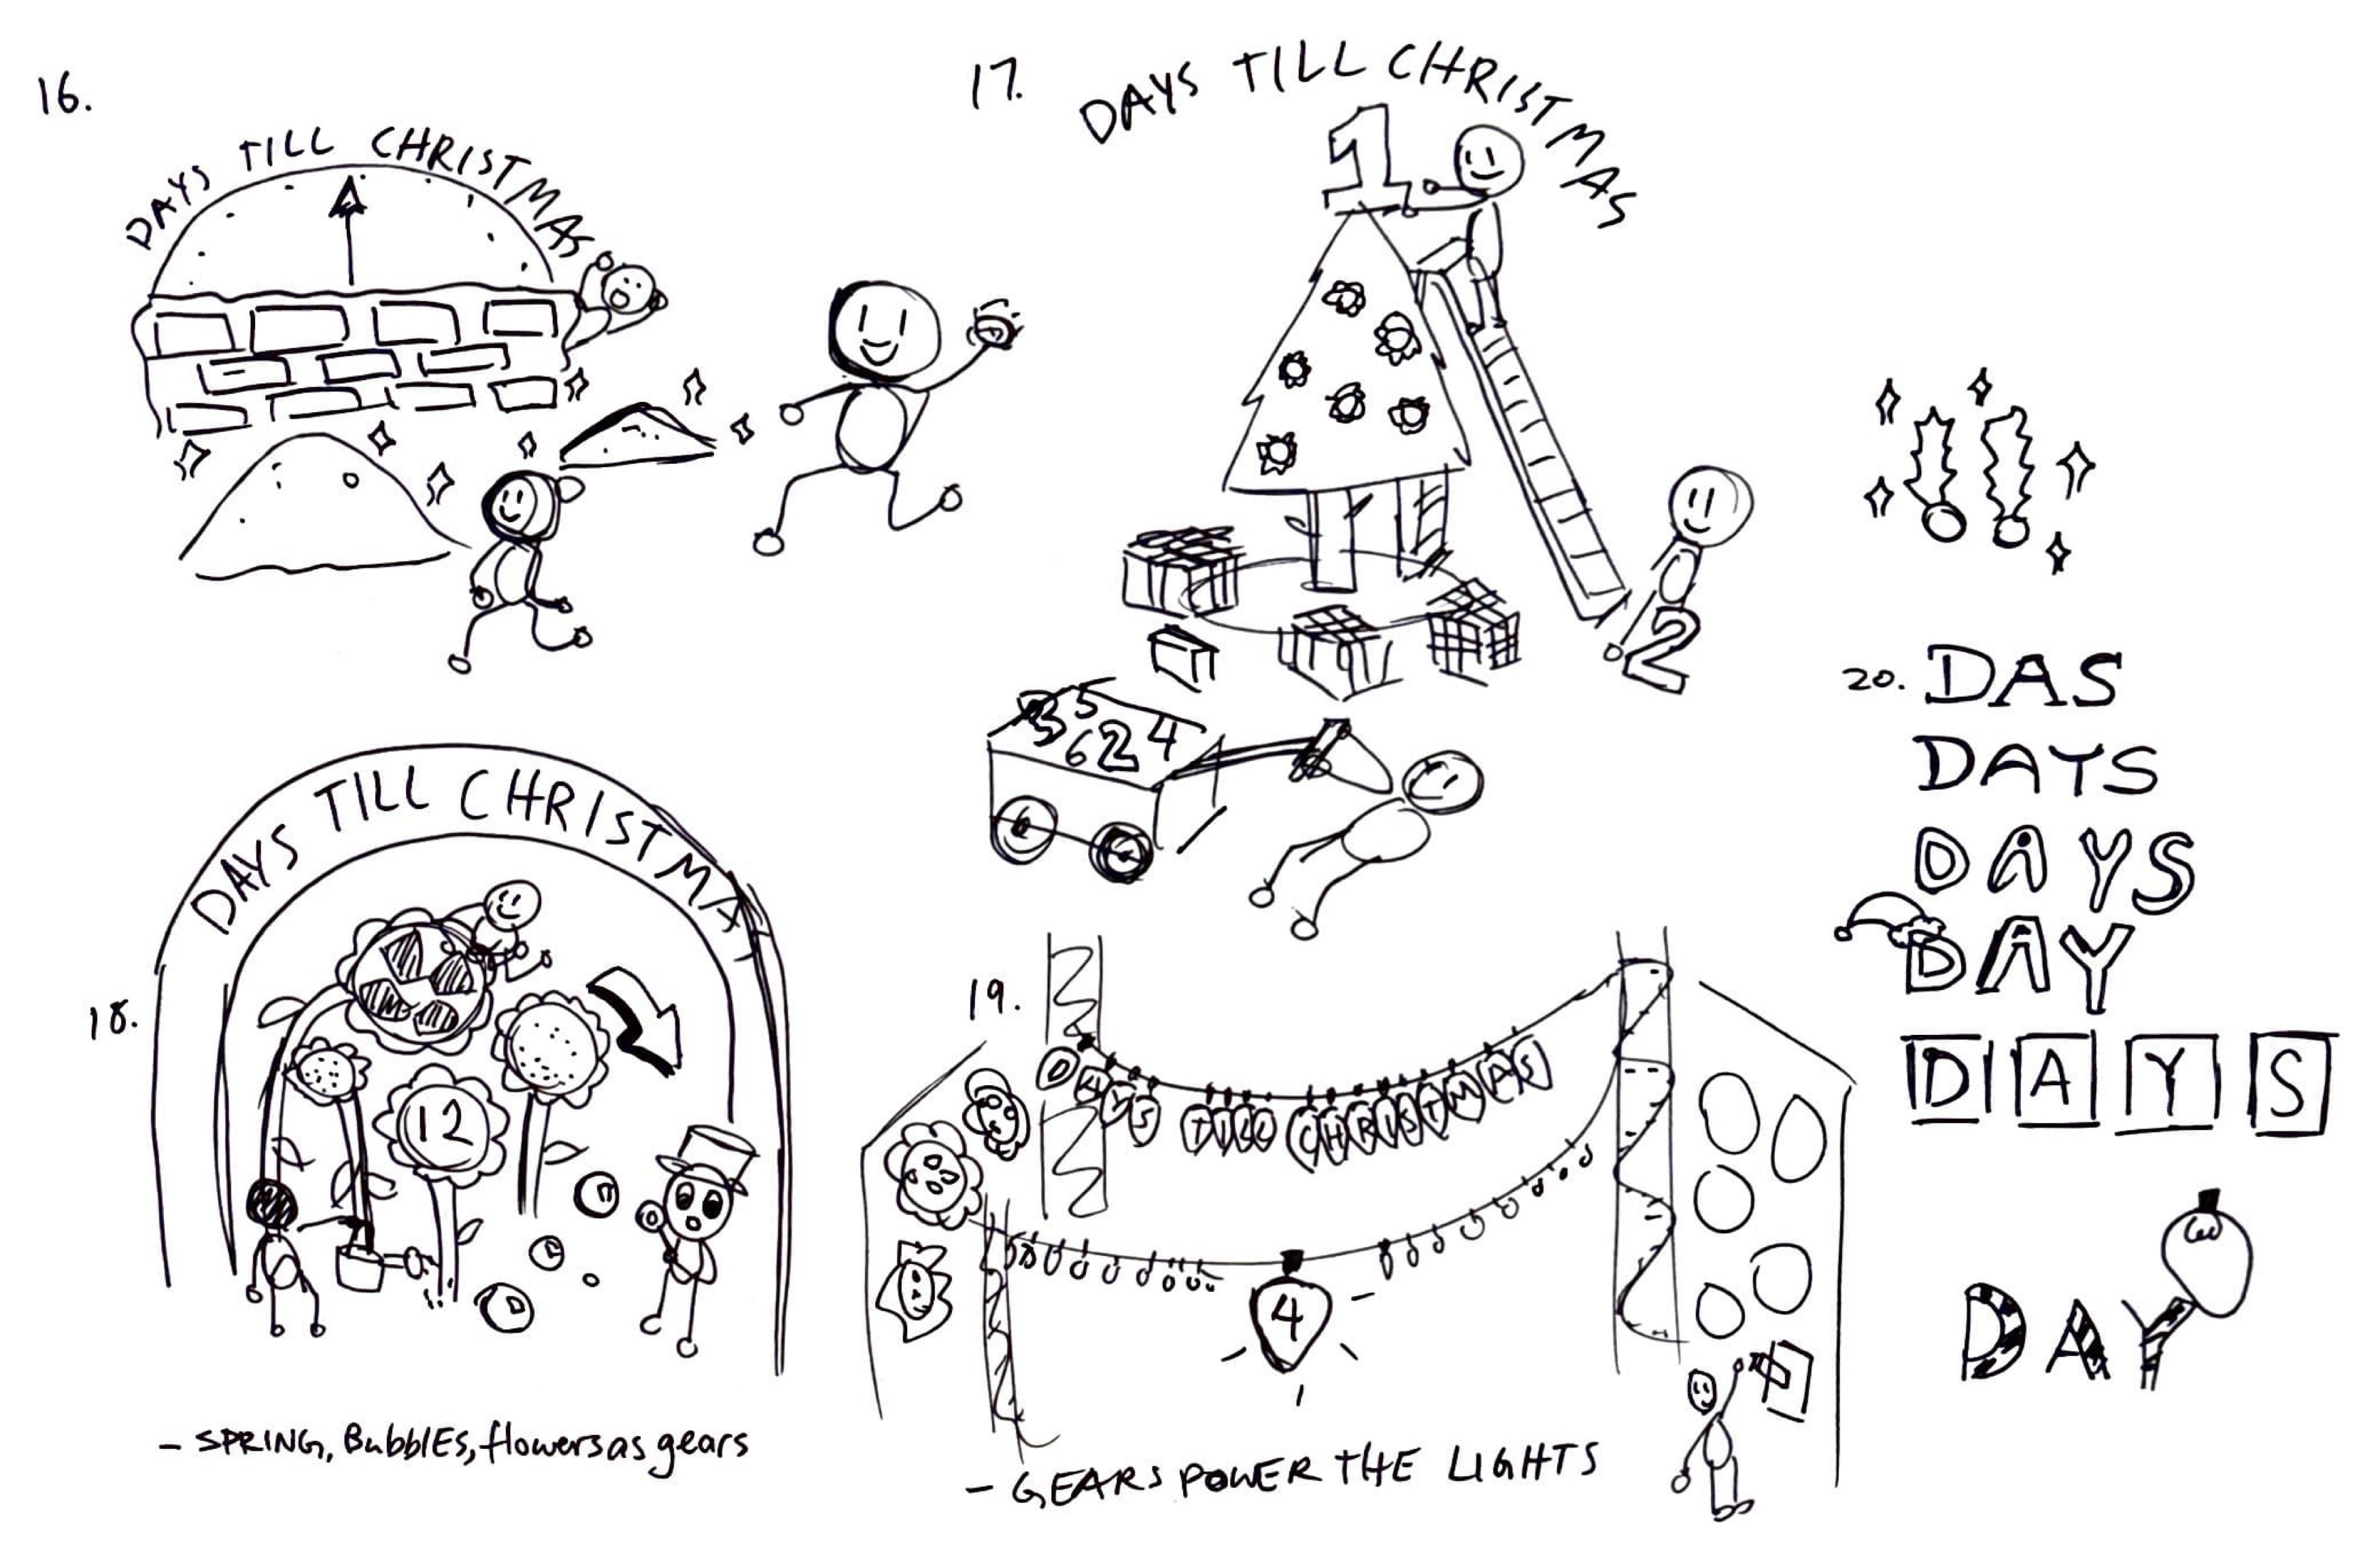 16.
DAYS TILL CHRISTMAS
17.
DAYS TILL CHRISTMAS
1
2
3 5
6 2 4
18.
DAYS TILL CHRISTMA
12
- SPRING, BubblES, flowers as gears
19.
DAYS TILL CHRISTMAS
4
- GEARS POWER THE LIGHTS
20. DAS
DAYS
DAYS
DAY
DAYS
DAY